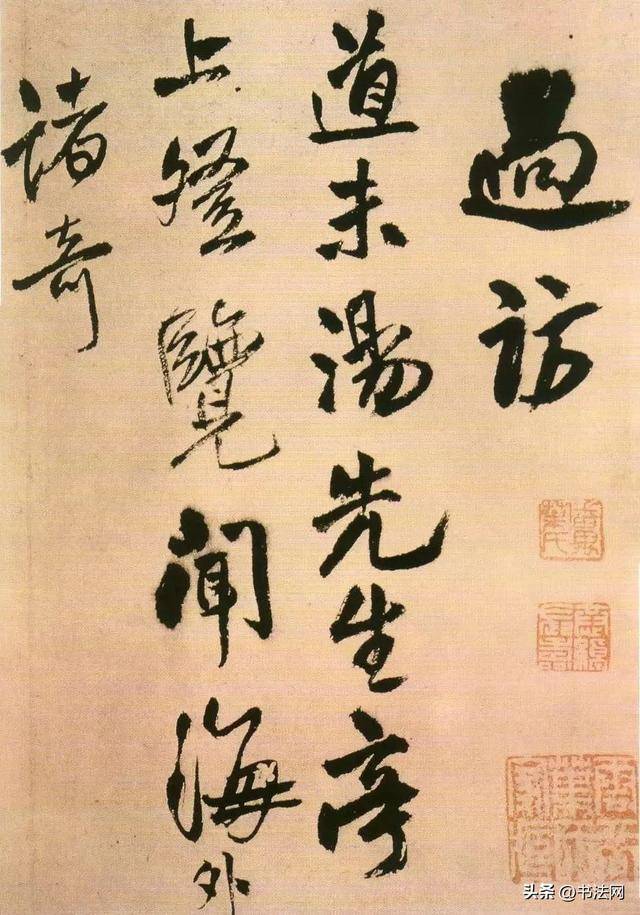 過訪
道未湯先生亭
上登覽聞海外
諸奇
头条 @书法网